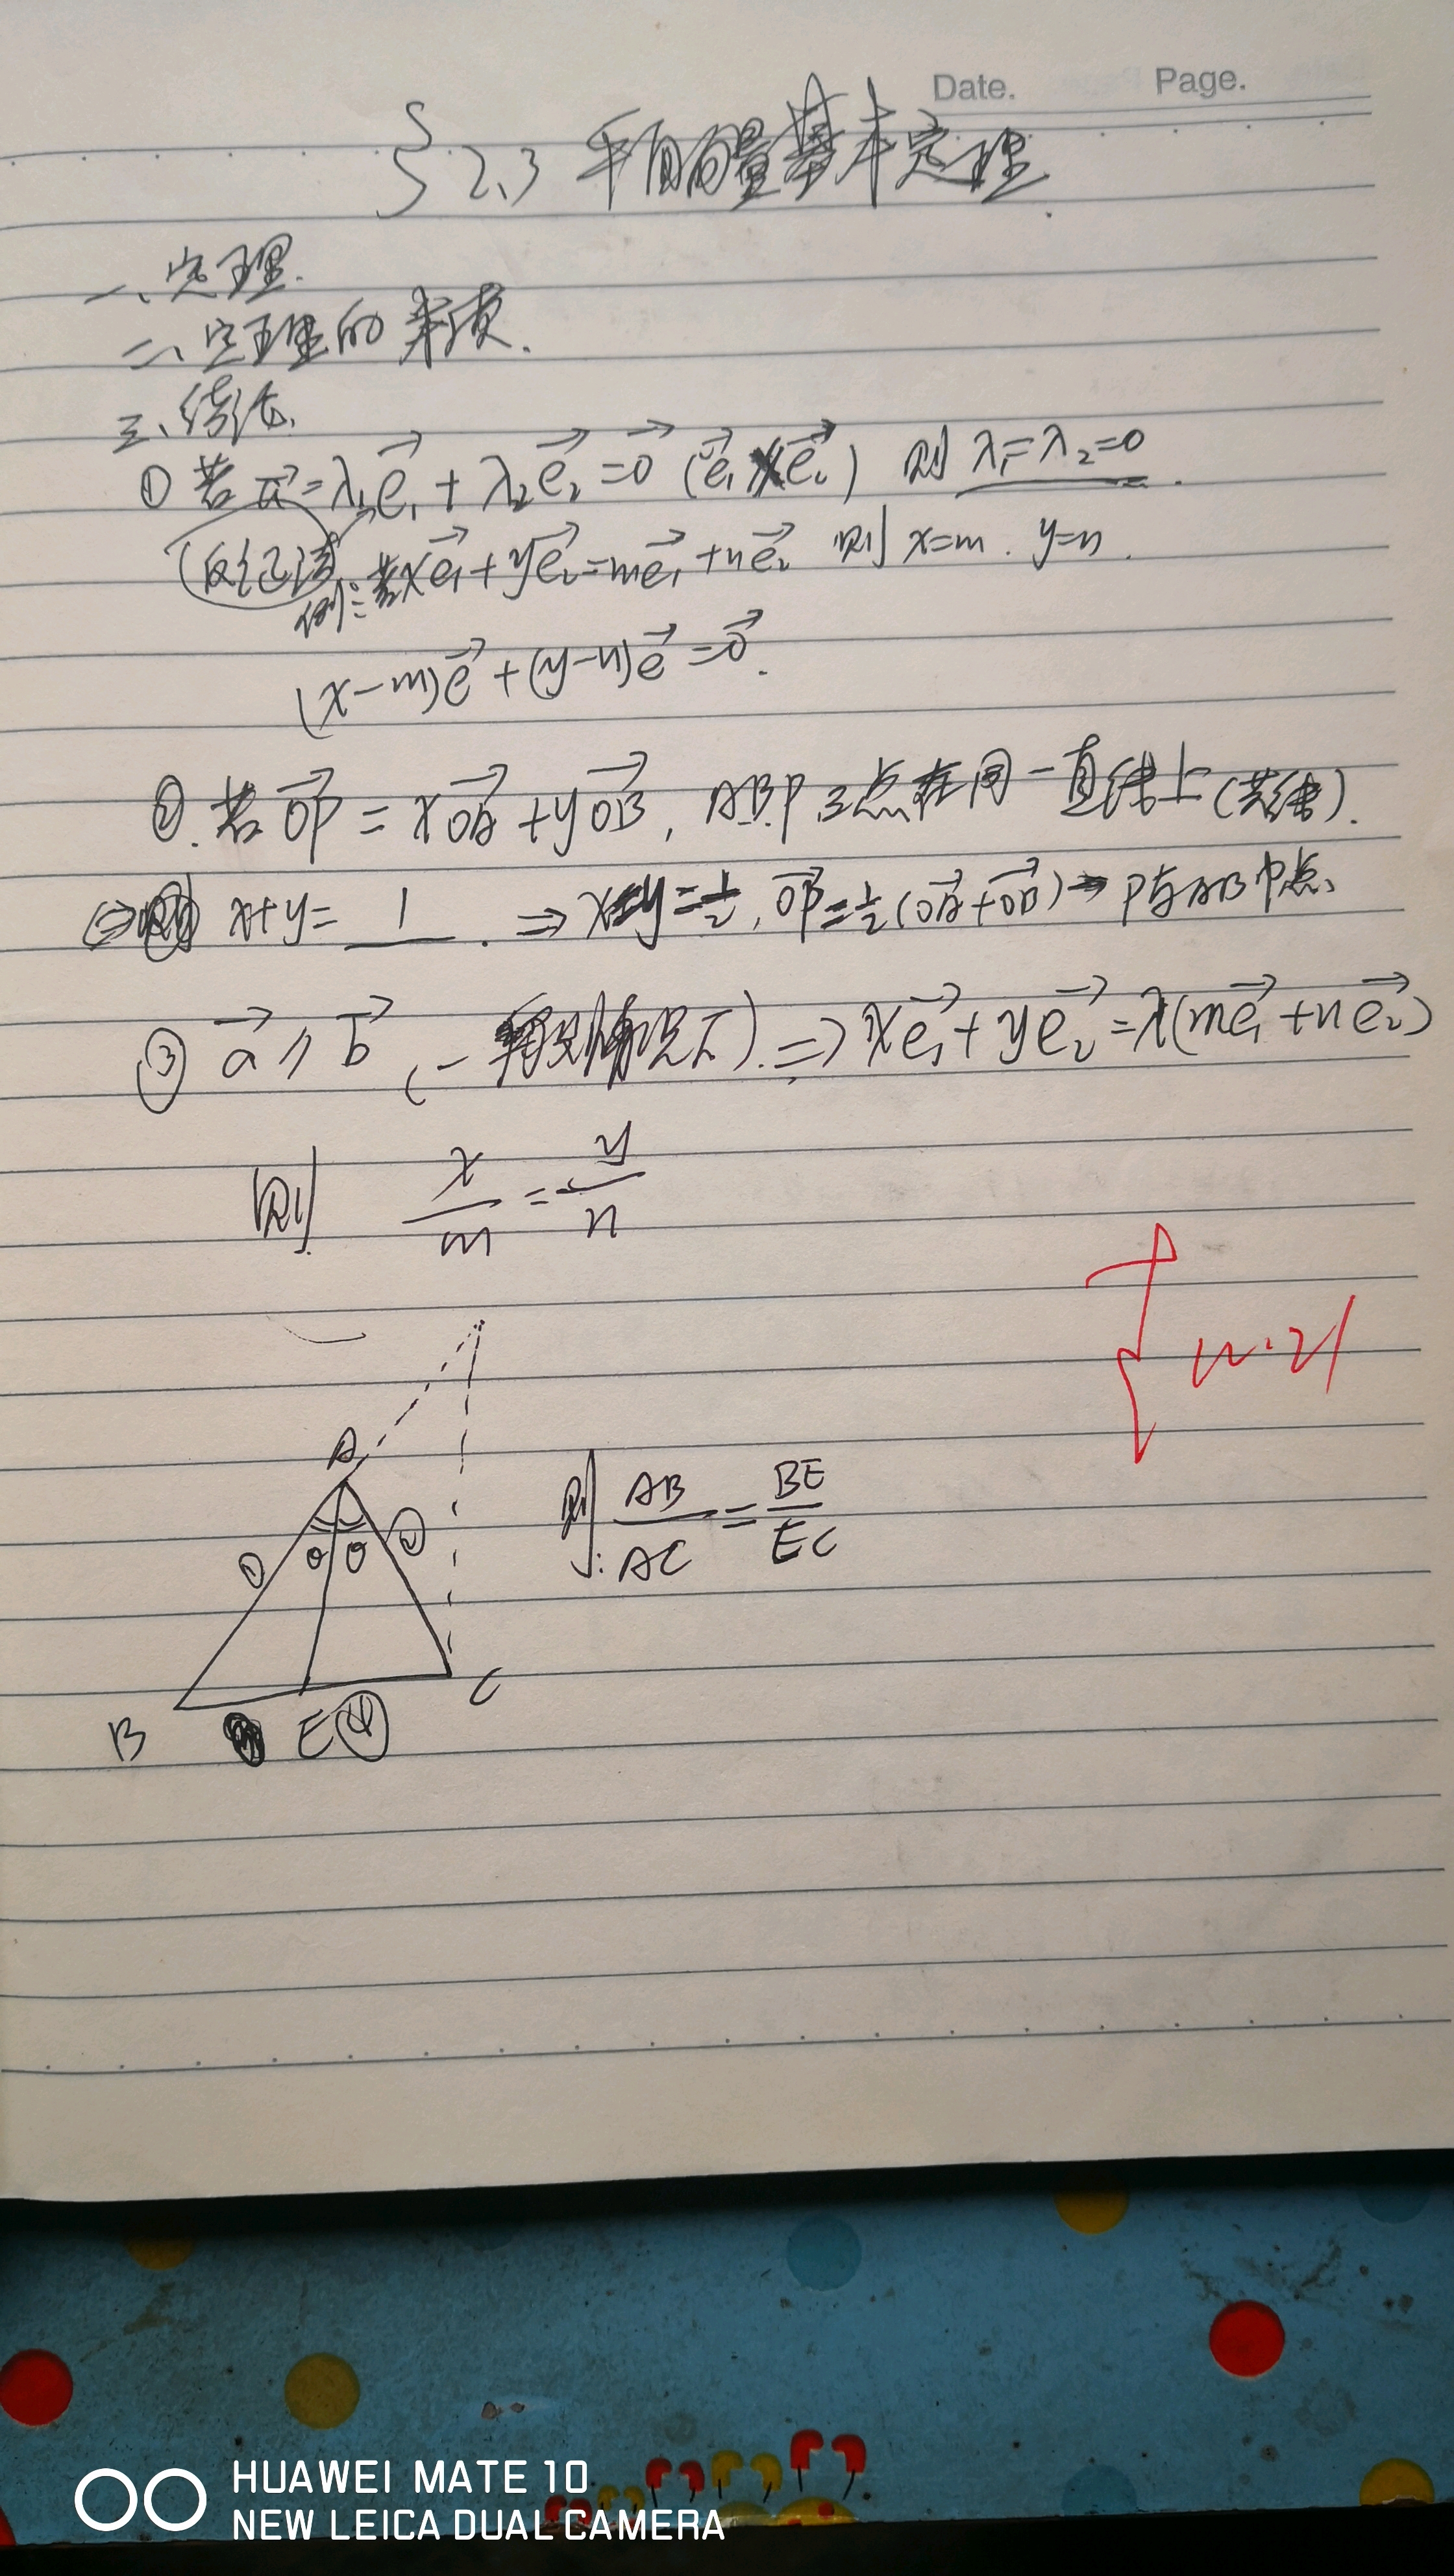 Date. Page.
§2.3 平面向量基本定理.
一、定理.
二、定理的本质.
三、结论.
① 若a⃗=λ₁e₁⃗+λ₂e₂⃗=0⃗ (e₁⃗∦e₂⃗) 则 λ₁=λ₂=0.
(反证法)
例:若xe₁⃗+ye₂⃗=me₁⃗+ne₂⃗ 则 x=m. y=n.
(x-m)e⃗+(y-n)e⃗=0⃗.
②. 若OP⃗=xOA⃗+yOB⃗, A.B.P.三点在同一直线上(共线).
x+y=1. ⇒x=y=½, OP⃗=½(OA⃗+OB⃗)→P为AB中点、
③ a⃗∥b⃗ (一般情况下). ⇒xe₁⃗+ye₂⃗=λ(me₁⃗+ne₂⃗)
则 x/m=y/n
A
① θ θ ②
则: AB/AC=BE/EC
B E④ C
HUAWEI MATE 10
NEW LEICA DUAL CAMERA